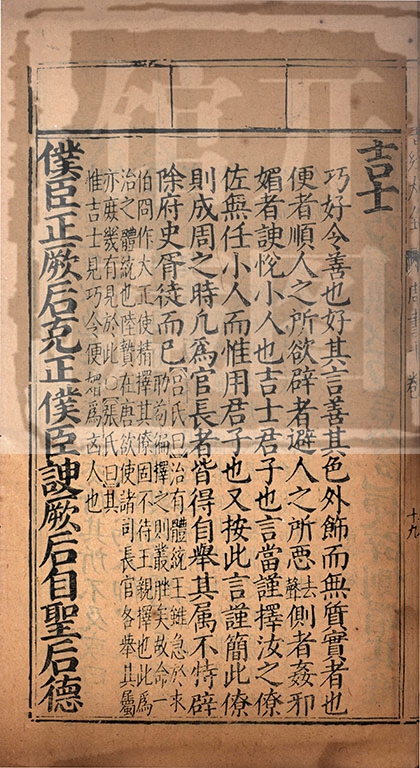 吉士
巧好令善也好其言善其色外飾而無質實者也
便者順人之所欲辟者避人之所惡去聲側者姦邪
媚者諛悅小人也吉士君子也言當謹擇汝之僚
佐無任小人而惟用君子也又按此言謹簡此僚
則成周之時凡爲官長者皆得自舉其属不特辟
除府史胥徒而已
呂氏曰治有體統王雖急於求
助苟徧擇之則叢脞矣故命一
伯冏作大正使精擇其僚固不待王親擇也此爲
治之體統也陸贄在唐欲使諸司長官各舉其屬
亦庶幾有見於此○張氏曰其
惟吉士見巧令便媚爲凶人也
僕臣正厥后克正僕臣諛厥后自聖后德
十九